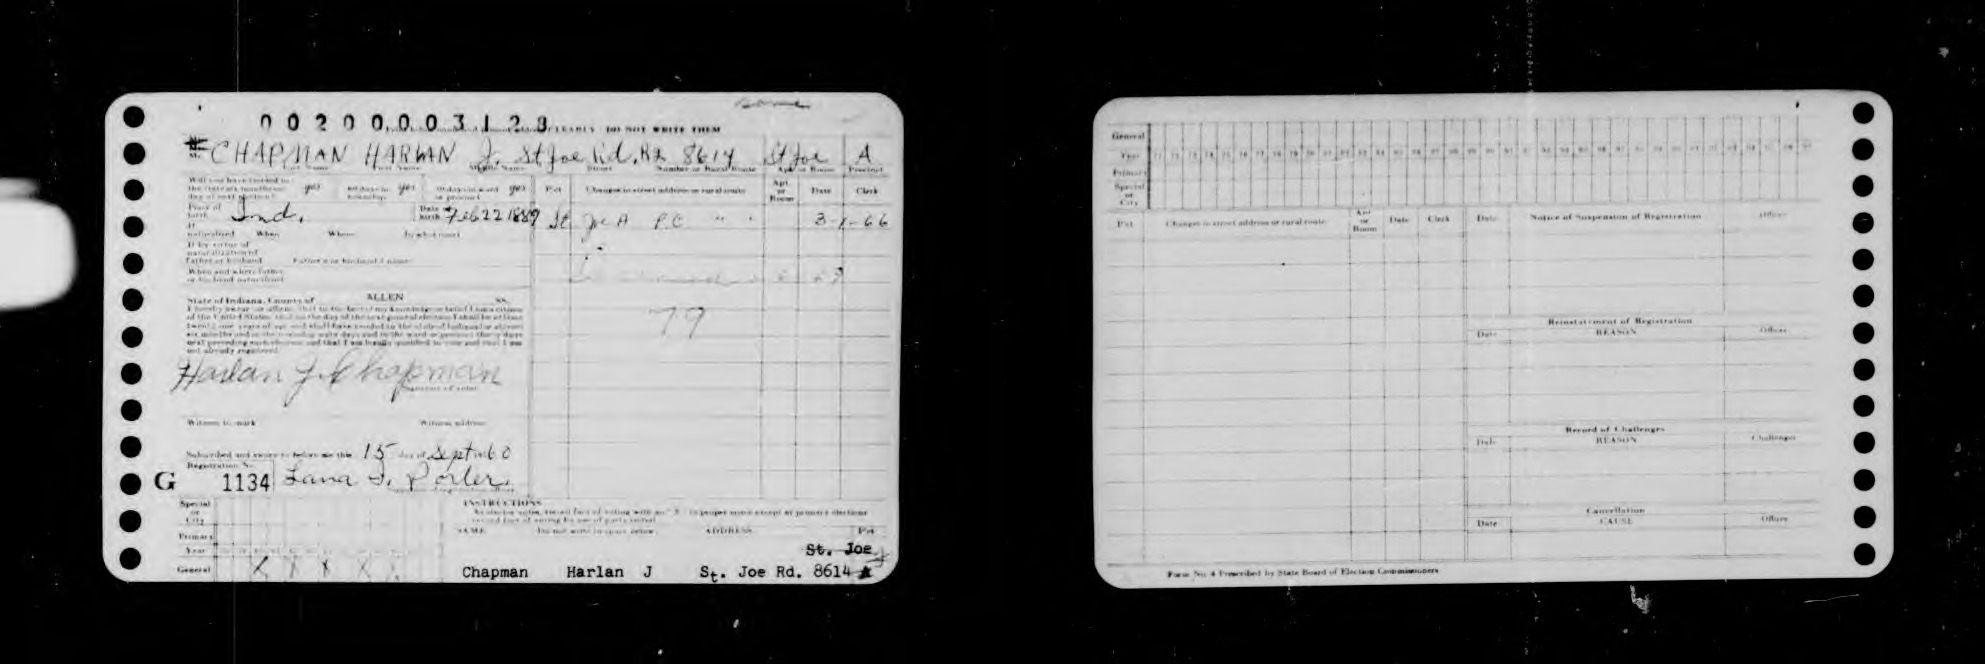 same
00200003128
CLEARLY DO NOT WRITE THEM
M. CHAPMAN HARLAN J. St Joe Rd. 8614 St Joe A
Last Name First Name Middle Name Street Number or Rural Route Apt. or Room Precinct
Will you have resided in
the state six months on yes 60 days in yes 30 days in ward yes
day of next election? township or precinct
Pct Changes in street address or rural route Apt. or Room Date Clerk
Place of birth Ind. Date of birth Feb 22 1889
St Joe A P.C " " 3-1-66
If naturalized When Where In what court
If by virtue of
naturalization of
Father or husband Father's or husband's name
When and where father
or husband naturalized
State of Indiana, County of ALLEN ss.
I hereby swear or affirm that to the best of my knowledge or belief I am a citizen
of the United States, that on the day of the next general election I shall be at least
twenty-one years of age and shall have resided in the state of Indiana at least
six months and in the township sixty days and in the ward or precinct thirty days
next preceding such election and that I am legally qualified to vote and that I am
not already registered.
79
Harlan J. Chapman
Signature of voter
Witness to mark Witness address
Subscribed and sworn to before me this 15 day of Sept 1960
Registration No.
G 1134
Special
or
City
Primary
Year
General X X X X X
INSTRUCTIONS
NAME Do not write in space below. ADDRESS Pct
St. Joe
Chapman Harlan J St. Joe Rd. 8614 A
General
Year 71 72 73 74 75 76 77 78 79 80 81 82 83 84 85 86 87 88 89 90 91 92 93 94 95 96 97 98 99
Primary
Special
or
City
Pct Changes in street address or rural route Apt. or Room Date Clerk
Date Notice of Suspension of Registration Officer
Reinstatement of Registration
Date REASON Officer
Record of Challenges
Date REASON Challenger
Cancellation
Date CAUSE Officer
Form No. 4 Prescribed by State Board of Election Commissioners